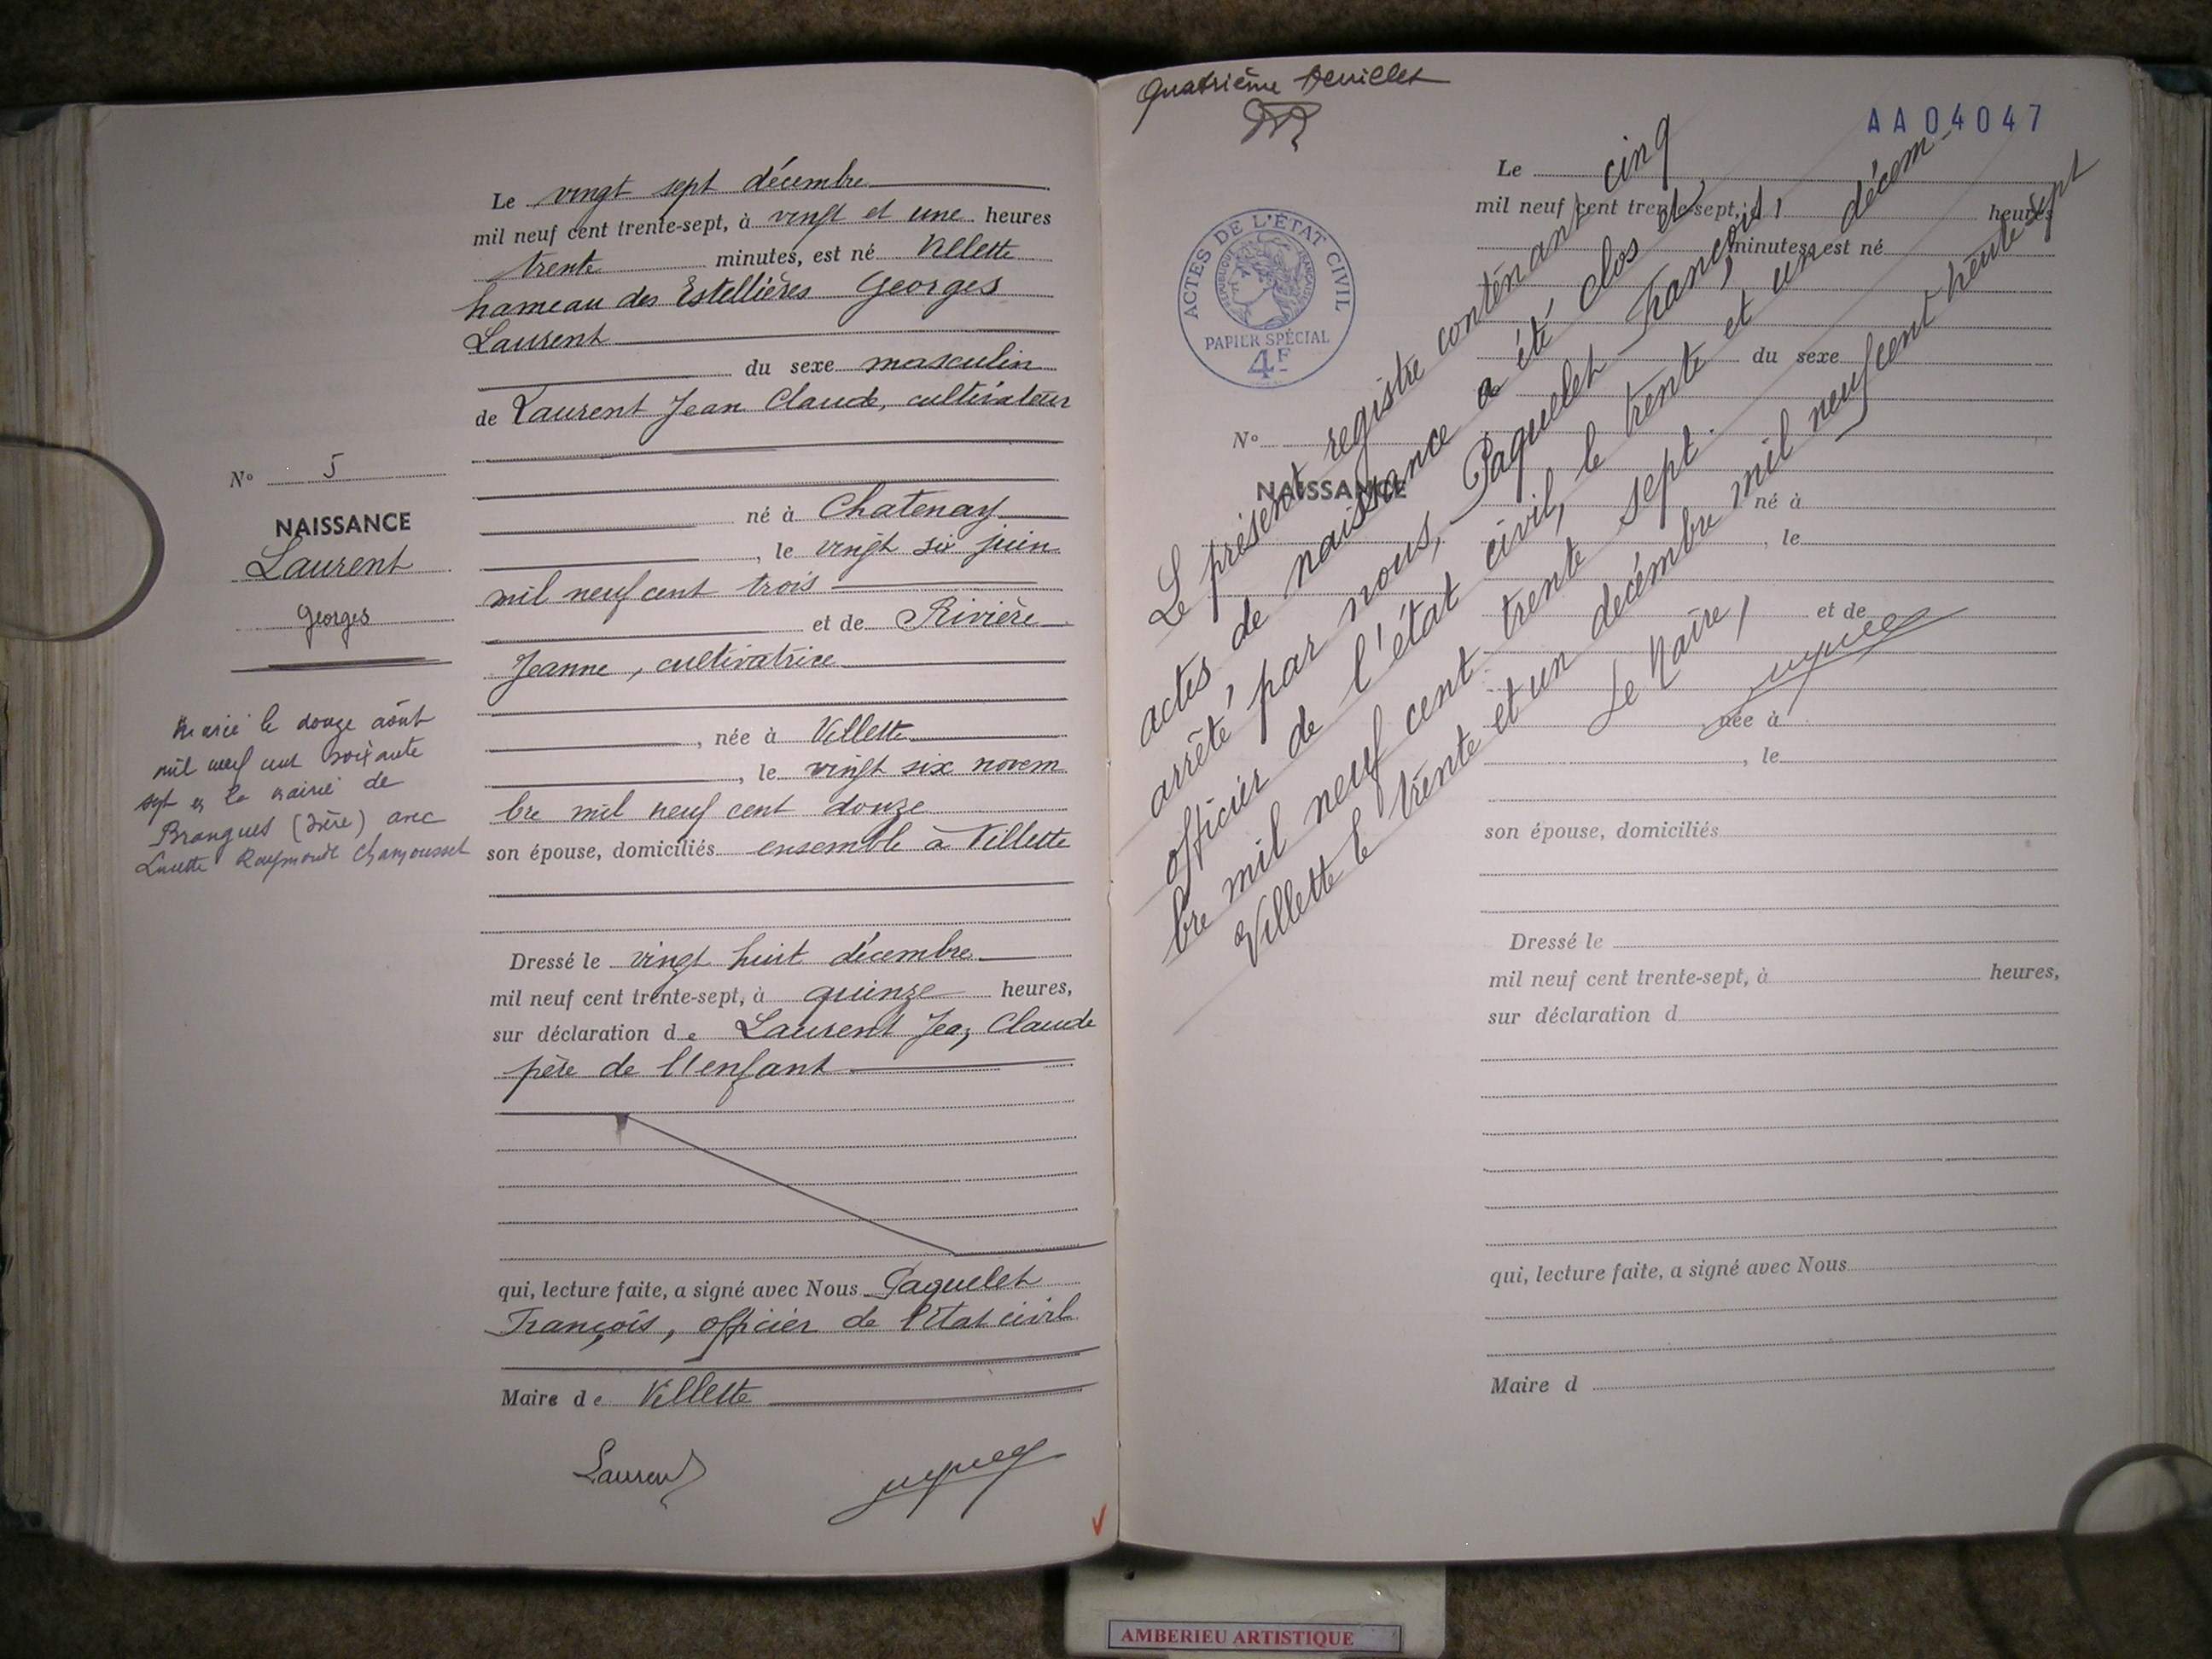 Le vingt sept décembre
mil neuf cent trente-sept, à vingt et une heures
trente minutes, est né Villette
hameau des Estellières Georges
Laurent
du sexe masculin
de Laurent Jean Claude, cultivateur
né à Chatenay
, le vingt six juin
mil neuf cent trois
et de Rivière
Jeanne, cultivatrice
, née à Villette
, le vingt six novem
bre mil neuf cent douze
son épouse, domiciliés ensemble à Villette
Dressé le vingt huit décembre
mil neuf cent trente-sept, à quinze heures,
sur déclaration de Laurent Jean Claude
père de l'enfant
qui, lecture faite, a signé avec Nous Paquelet
François, officier de l'Etat civil
Maire de Villette
Laurent
No 5
NAISSANCE
Laurent
Georges
Marié le douze août
mil neuf cent soixante
sept en la mairie de
Brangues (Isère) avec
Lucette Raymonde Chamousset
Quatrième feuillet
AA04047
ACTES DE L'ÉTAT CIVIL
RÉPUBLIQUE FRANÇAISE
PAPIER SPÉCIAL
4F
No
NAISSANCE
Le
mil neuf cent trente-sept, à heures
minutes, est né
du sexe
né à
, le
et de
née à
, le
son épouse, domiciliés
Dressé le
mil neuf cent trente-sept, à heures,
sur déclaration d
qui, lecture faite, a signé avec Nous
Maire d
Le présent registre contenant cinq
actes de naissance a été clos et
arrêté par nous, Paquelet François,
officier de l'état civil, le trente et un décem-
bre mil neuf cent trente sept.
Villette le trente et un decémbre mil neuf cent trente sept
Le Maire,
AMBERIEU ARTISTIQUE